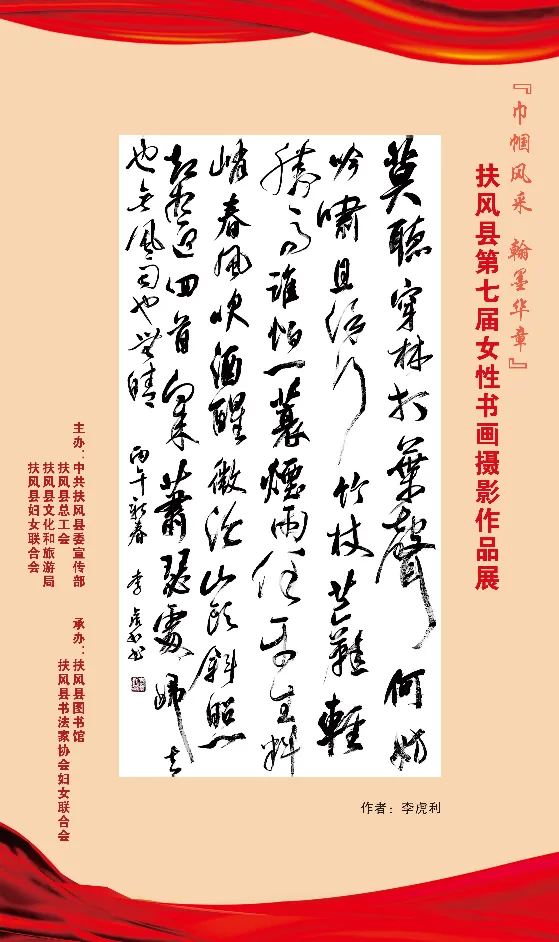 『巾帼风采 翰墨华章』
扶风县第七届女性书画摄影作品展
莫聽穿林打葉聲何妨
吟嘯且徐行竹杖芒鞋輕
勝馬誰怕一蓑煙雨任平生料
峭春風吹酒醒微冷山頭斜照
却相迎回首向来蕭瑟處歸去
也无風雨也無晴 丙午新春 李虎利书
主办：中共扶风县委宣传部
扶风县总工会
扶风县文化和旅游局
扶风县妇女联合会
承办：扶风县图书馆
扶风县书法家协会妇女联合会
作者：李虎利